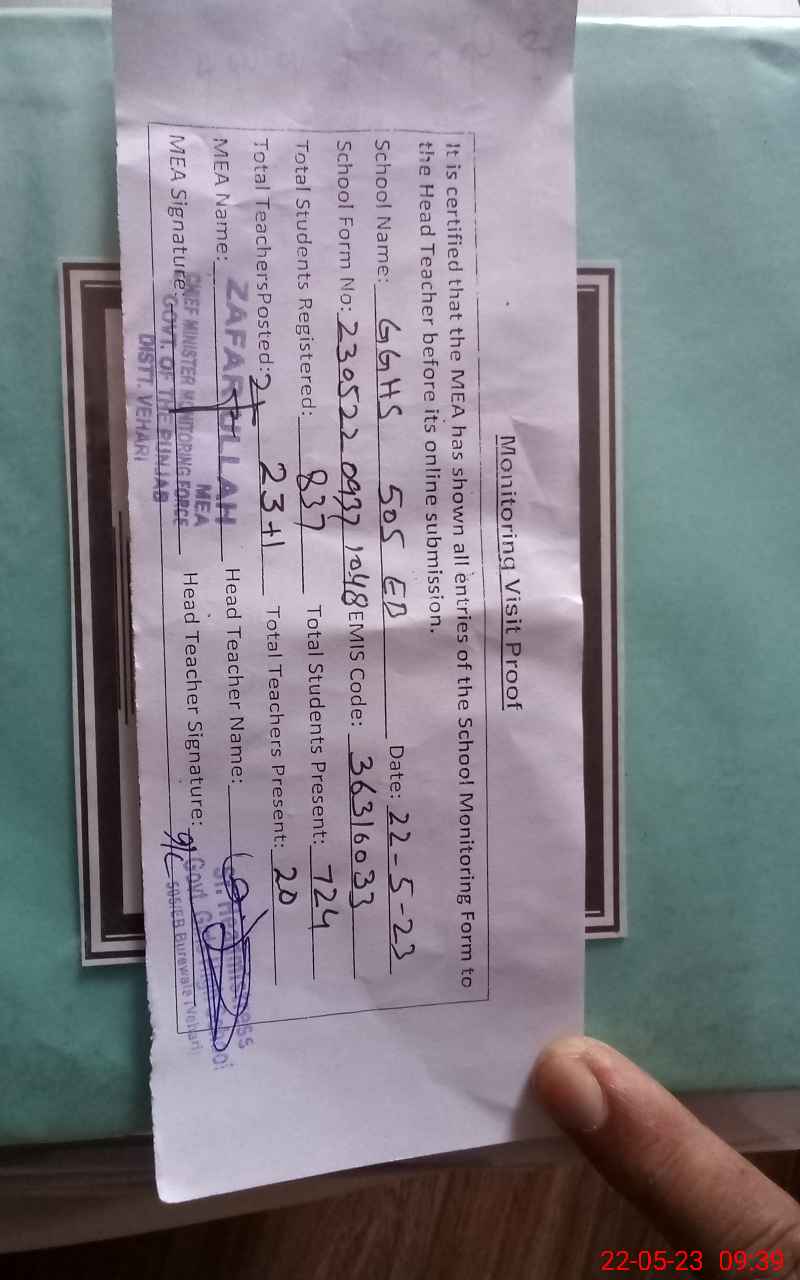 Monitoring Visit Proof
It is certified that the MEA has shown all entries of the School Monitoring Form to
the Head Teacher before its online submission.
School Name: GGHS 505 EB Date: 22-5-23
School Form No: 230522 0937 1048 EMIS Code: 36316033
Total Students Registered: 837 Total Students Present: 724
Total TeachersPosted: 23+1 Total Teachers Present: 20
MEA Name: ZAFAR ULLAH Head Teacher Name:
MEA
MEA Signature: Head Teacher Signature:
CHIEF MINISTER MONITORING FORCE
GOVT. OF THE PUNJAB
DISTT. VEHARI
Govt. G
505/EB Burewala (Vehari)
22-05-23 09:39